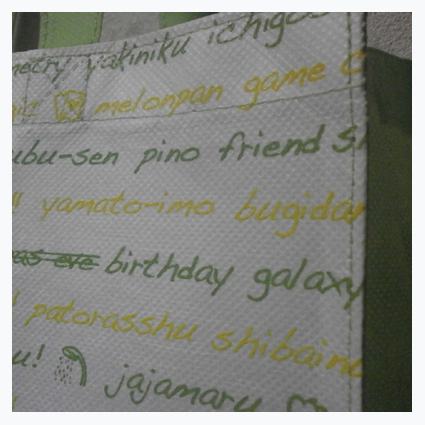 yakiniku ichigo
melonpan game
ubu-sen pino friend
yamato-imo bugidan
eve birthday galaxy
patorasshu shibainu
u! jajamaru